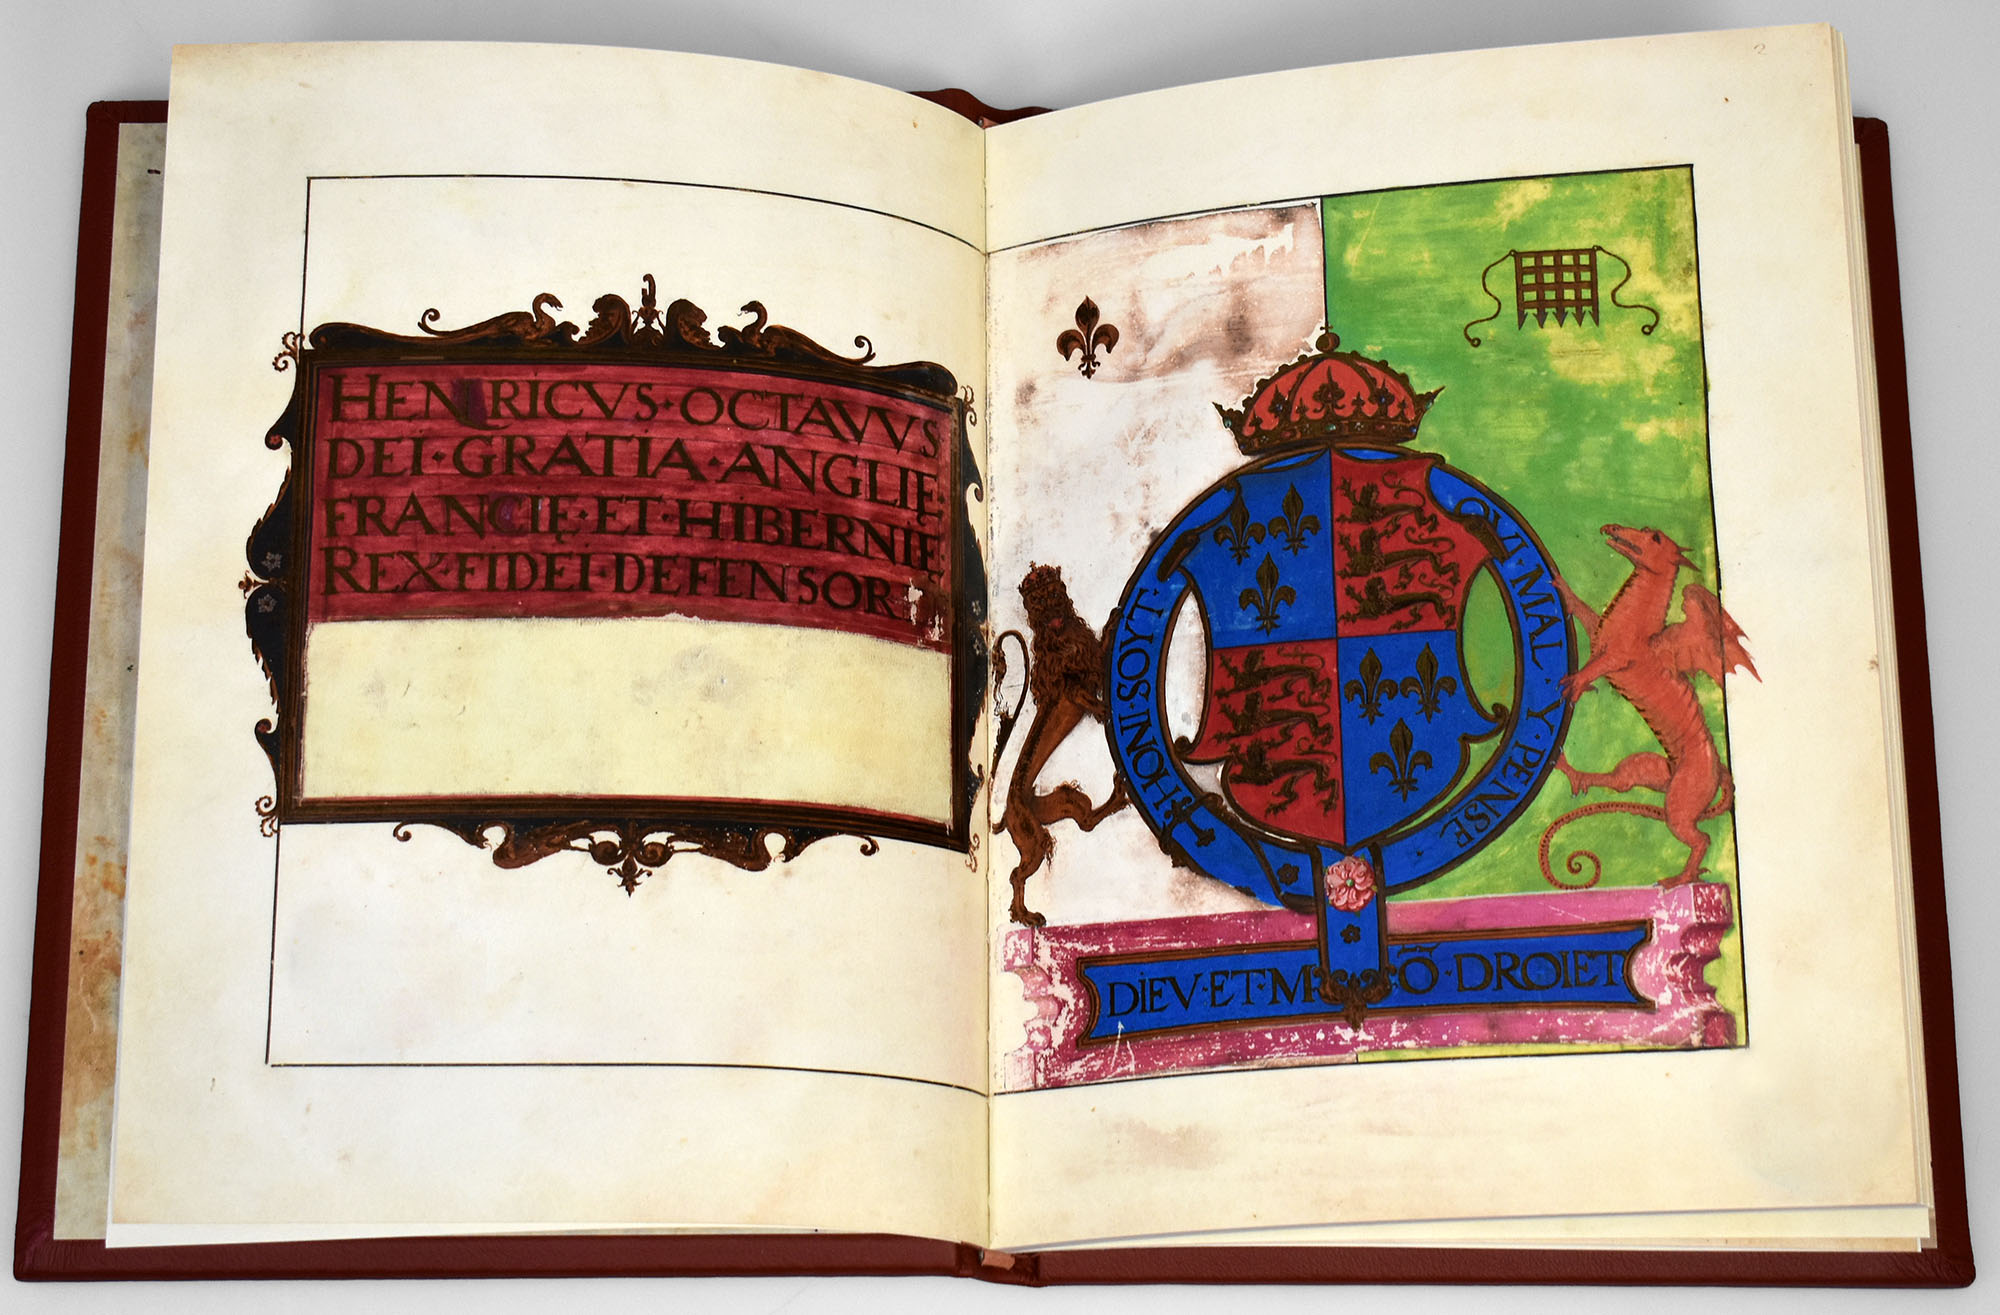 HENRICVS·OCTAVVS
DEI·GRATIA·ANGLIĘ·
FRANCIĘ·ET·HIBERNIĘ·
REX·FIDEI·DEFENSOR·
2
HONI·SOYT·QVI·MAL·Y·PENSĘ·
DIEV·ET·M·Õ·DROIET